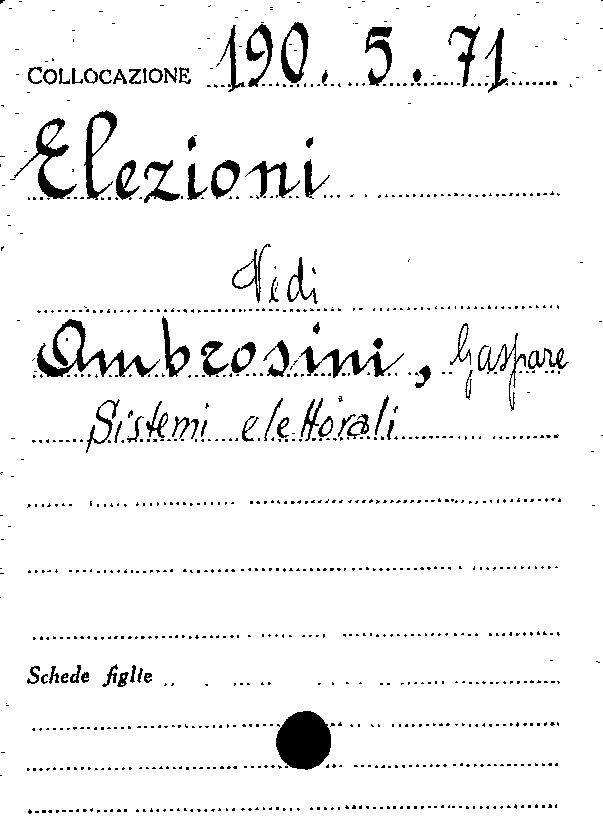 COLLOCAZIONE 190.5.71
Elezioni
Vedi
Ambrosini, Gaspare
Sistemi elettorali
Schede figlie